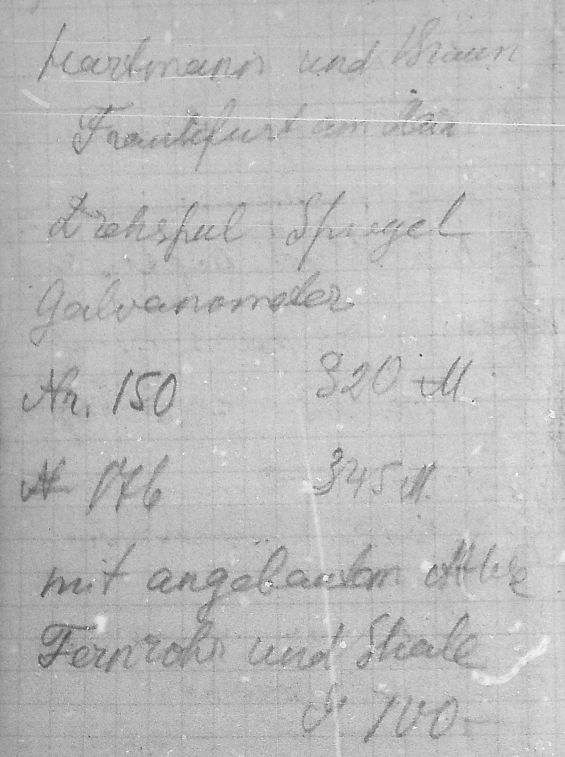 Hartmann und Braun
Frankfurt am Main
Drehspul Spiegel
Galvanometer
Nr. 150 320 M.
Nr 176 345 M.
mit angebautem
Fernrohr und Skale
100.-